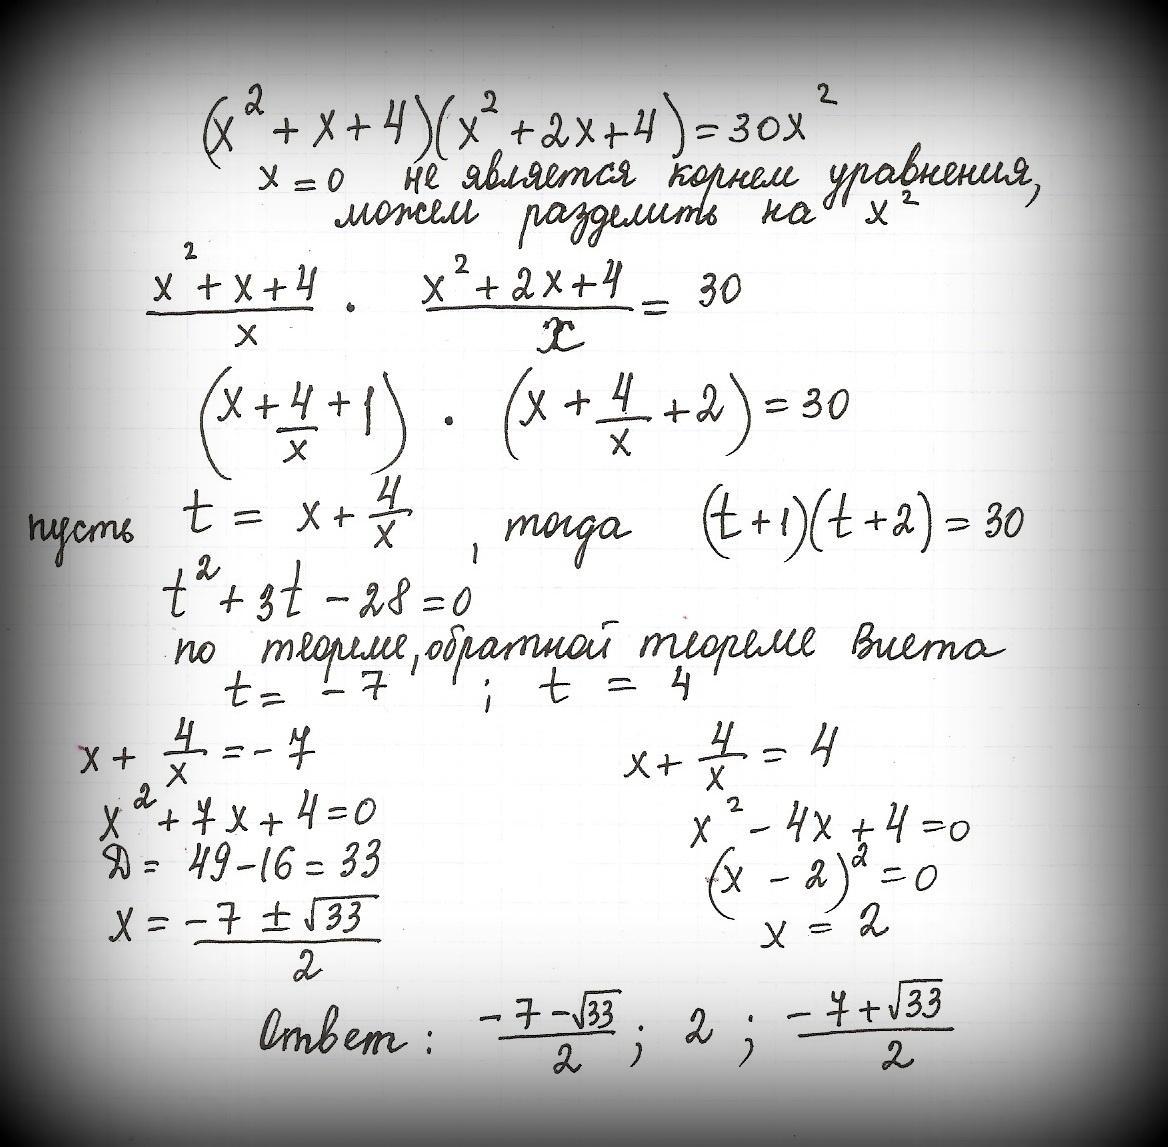 (x² + x + 4)(x² + 2x + 4) = 30x²
x = 0 не является корнем уравнения,
можем разделить на x²
(x² + x + 4)/x · (x² + 2x + 4)/x = 30
(x + 4/x + 1) · (x + 4/x + 2) = 30
пусть t = x + 4/x, тогда (t + 1)(t + 2) = 30
t² + 3t − 28 = 0
по теореме, обратной теореме Виета
t = −7 ; t = 4
x + 4/x = −7
x² + 7x + 4 = 0
Д = 49 − 16 = 33
x = (−7 ± √33)/2
x + 4/x = 4
x² − 4x + 4 = 0
(x − 2)² = 0
x = 2
Ответ: (−7 − √33)/2 ; 2 ; (−7 + √33)/2